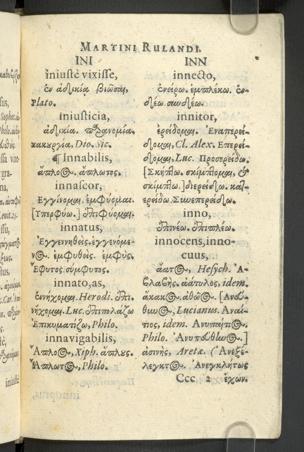 MARTINI RULANDI.
INI
iniustè vixisse,
ἐν ἀδικίᾳ βιῶσαι,
Plato.
iniusticia,
ἀδικία. παρανομία.
κακεργία. Dio. Sic.
¶ Innabilis,
innascor,
Ἐγγίνομαι. ἐμφύομαι.
[Ὑπερφύω.] ἐπιφύομαι.
innatus,
Ἐγγεινηθεὶς. ἐγγινόμε-
ν⊙. ἐμφυθεὶς. ἐμφὺς.
Ἔφυτος. σύμφυτος.
innato, as,
ἐννήχομαι. Herodi. ἐπι-
νήχομαι. Luc. ἐπιπολάζω
Ἐπικυματίζω, Philo.
innavigabilis,
Ἄπλο⊙, Xiph. ἄπλους.
Ἄπλωτ⊙, Philo.
INN
innecto,
ἐνείρω. ἐμπλέκω. ἐν-
δέω. συνδέω.
innitor,
ἐρείδομαι. Ἐναπερεί-
δομαι, Cl. Alex. Ἐπερεί-
δομαι, Luc. Προσερείδω,
[Σκήπτω. σκίμπτομαι. &
inno,
ἐπινέω. ἐπιπλέω.
innocens, inno-
cuus,
Hesych. Ἀ-
βλαβὴς. ἀάτυλος, idem.
ἄκακ⊙. ἀθῶ⊙. [Ἀνύ-
θυν⊙, Lucianus. Ἀναί-
τιος, idem. Ἀνυπαίτι⊙,
Philo. Ἀνυπεύθυν⊙.]
ἀσινὴς, Aretæ. (Ἀνεξέ-
λεγκτ⊙. Ἀνεγκλήτως
Ccc 2 ἔχων.